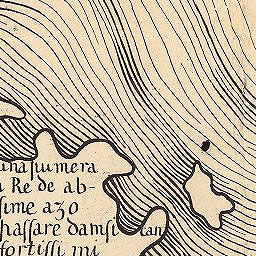 una fiumera
a Re de ab-
fime azo
passare damsi can
fortissi mi